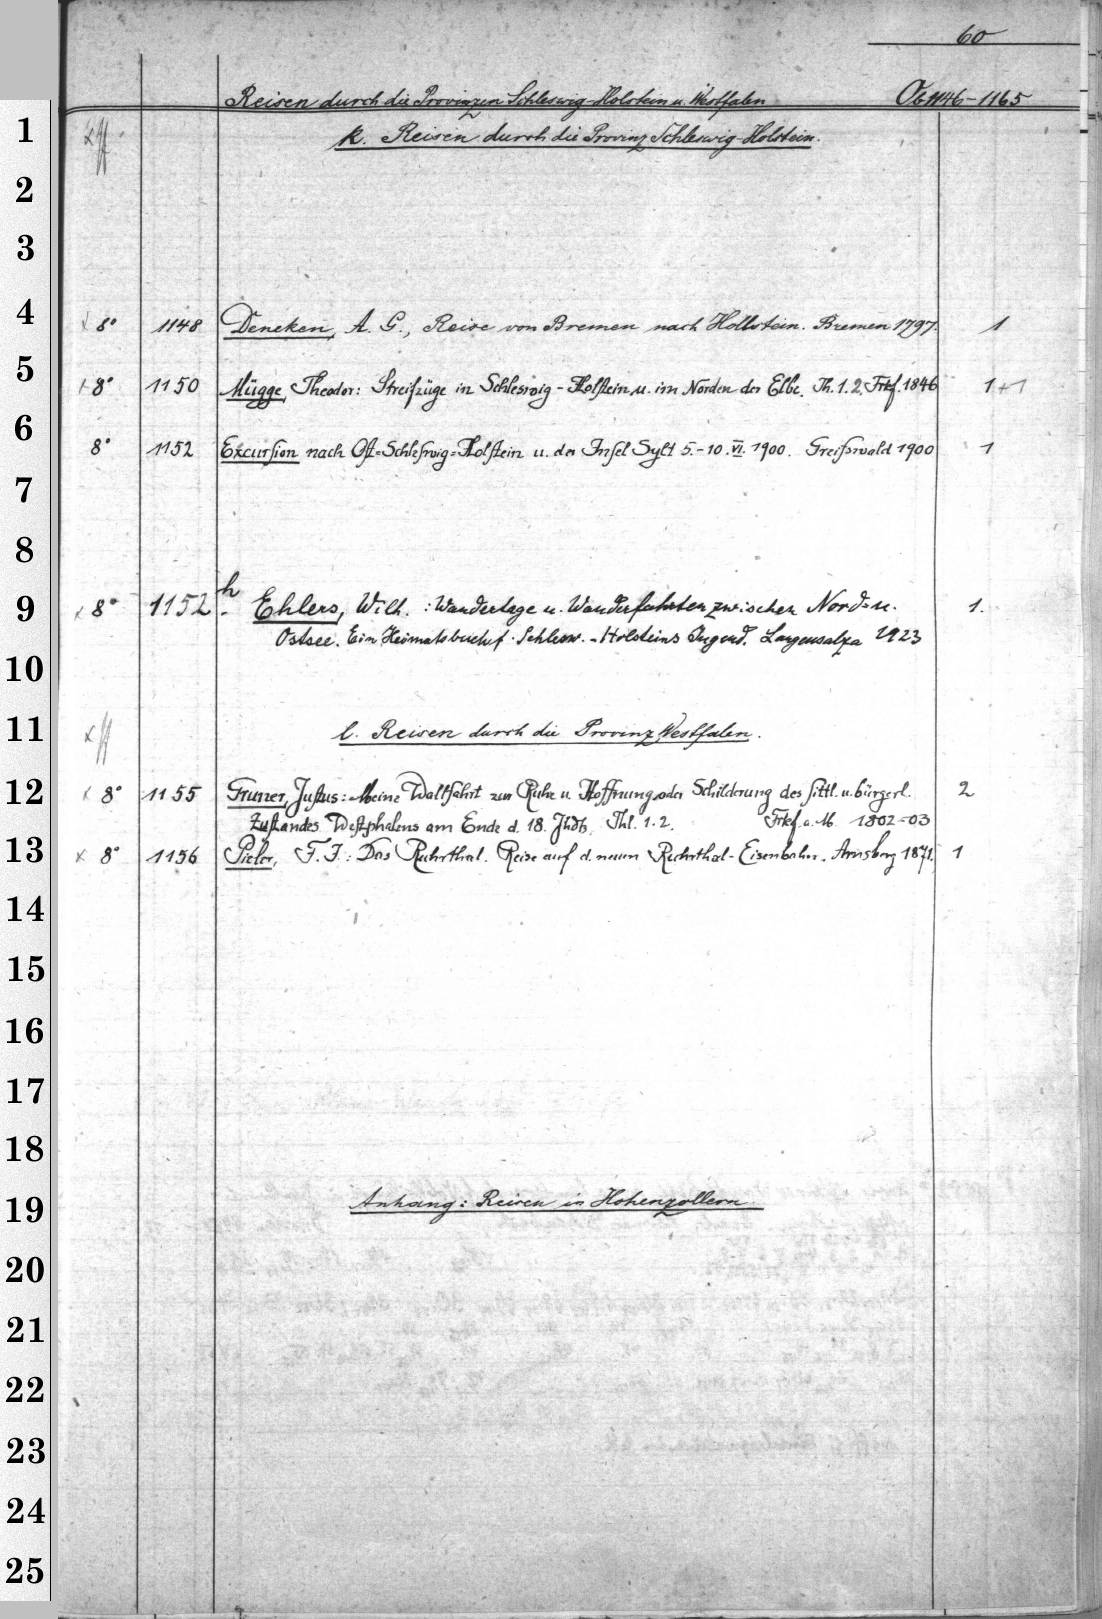 60
Reisen durch die Provinzen Schleswig-Holstein u. Westfalen Ob 1146-1165
1 k. Reisen durch die Provinz Schleswig-Holstein.
2
3
4 x 8° 1148 Deneken, A. G., Reise von Bremen nach Hollstein. Bremen 1797. 1
5 x 8° 1150 Mügge, Theodor: Streifzüge in Schleswig-Holstein u. im Norden der Elbe. Th. 1. 2. Frkf. 1846 1+1
6 8° 1152 Excursion nach Ost-Schleswig-Holstein u. der Insel Sylt 5.-10. VI. 1900. Greifswald 1900 1
7
8
9 x 8° 1152 h Ehlers, Wilh.: Wandertage u. Wanderfahrten zwischen Nord- u. 1.
Ostsee. Ein Heimatsbuch f. Schlesw.-Holsteins Jugend. Langensalza 1923
10
11 l. Reisen durch die Provinz Westfalen.
12 x 8° 1155 Gruner, Justus: Meine Wallfahrt zur Ruhe u. Hoffnung oder Schilderung des sittl. u. bürgerl. 2
Zustandes Westphalens am Ende d. 18. Jhdts. Thl. 1. 2. Frkf. a. M. 1802-03
13 x 8° 1156 Pieler, F. I.: Das Ruhrthal. Reise auf d. neuen Ruhrthal-Eisenbahn. Arnsberg 1871. 1
14
15
16
17
18
19 Anhang: Reisen in Hohenzollern
20
21
22
23
24
25